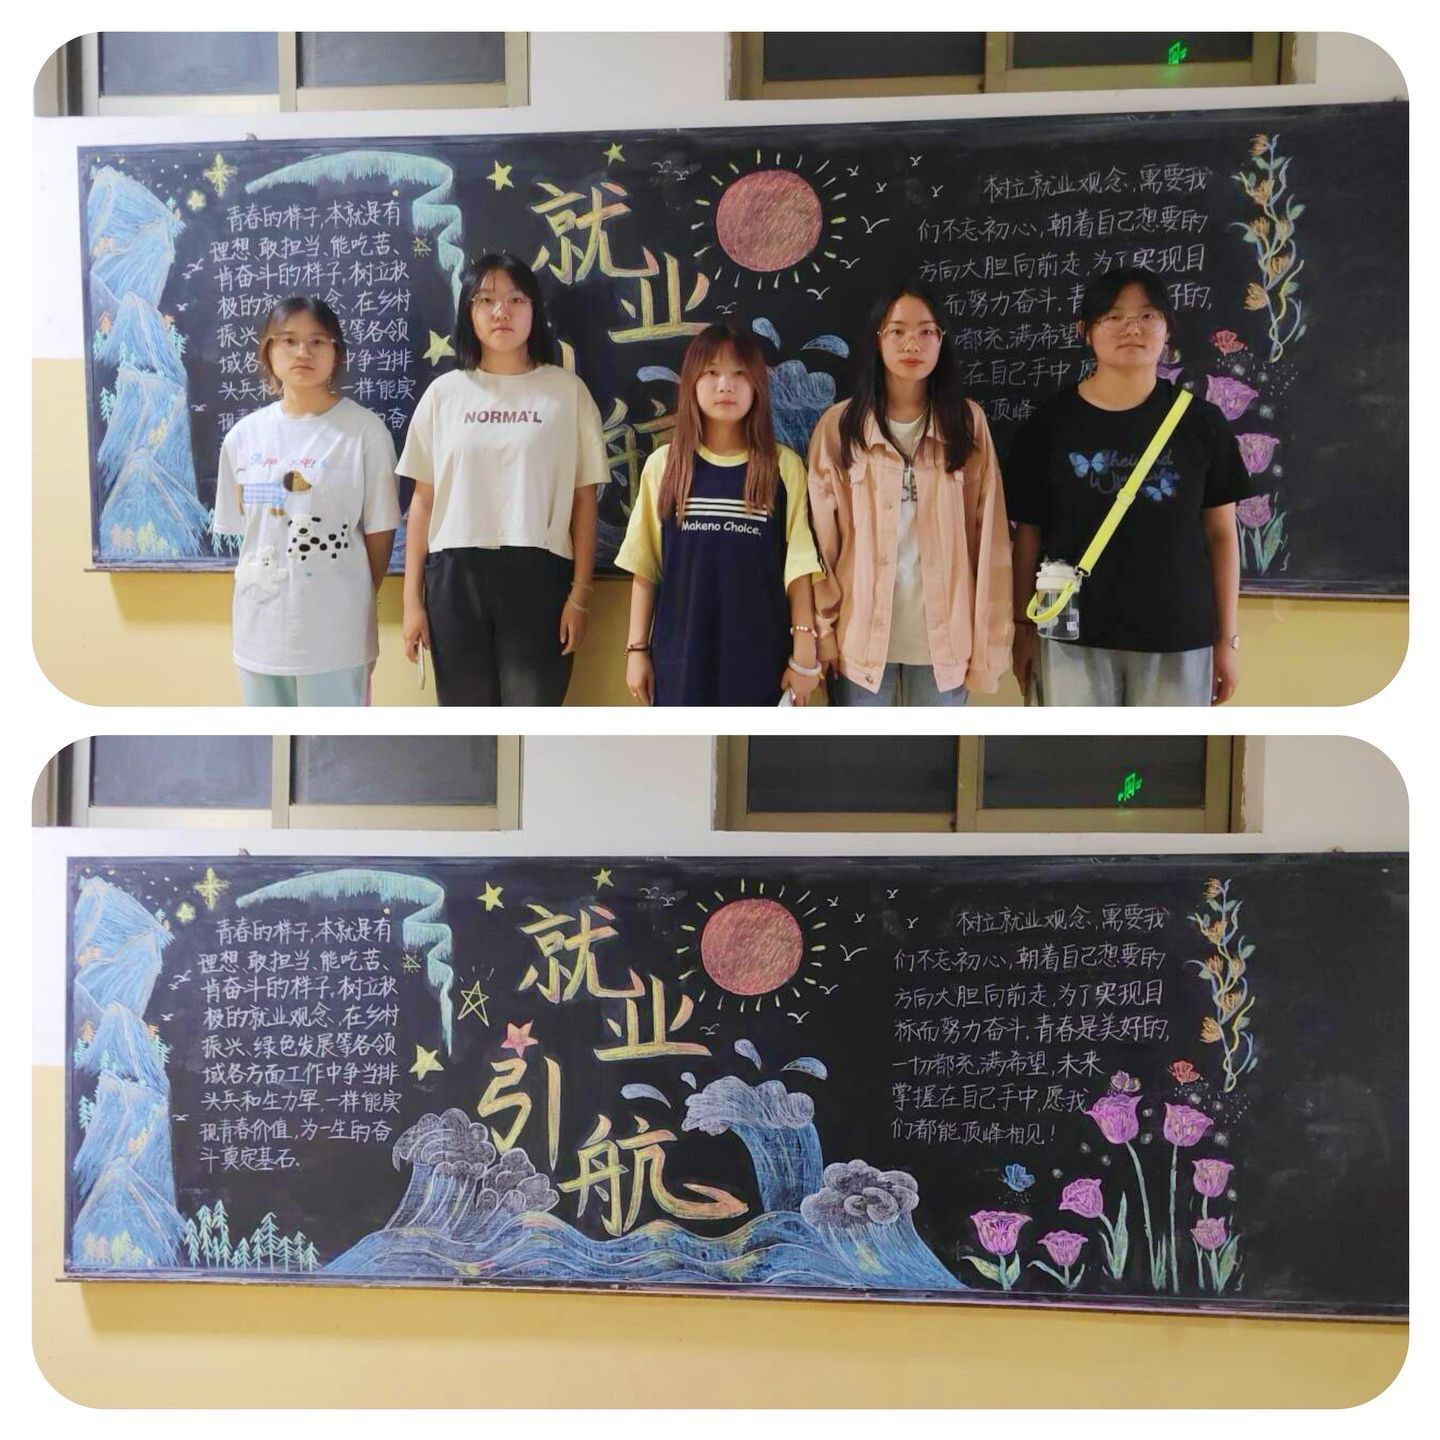 青春的样子,本就是有
理想、敢担当、能吃苦、
肯奋斗的样子。树立积
极的
念、在乡村
振兴、
展等各领
域各
中争当排
头兵和
一样能实
现青
的奋
就
业
航
树立就业观念,需要我
们不忘初心,朝着自己想要的
方向大胆向前走,为了实现目
而努力奋斗。青
好的,
都充满希望
在自己手中,愿
顶峰
NORMAL
Makeno Choice,
青春的样子,本就是有
理想、敢担当、能吃苦、
肯奋斗的样子。树立积
极的就业观念、在乡村
振兴、绿色发展等各领
域各方面工作中争当排
头兵和生力军,一样能实
现青春价值,为一生的奋
斗奠定基石。
就
业
引
航
树立就业观念,需要我
们不忘初心,朝着自己想要的
方向大胆向前走,为了实现目
标而努力奋斗。青春是美好的,
一切都充满希望,未来
掌握在自己手中,愿我
们都能顶峰相见!